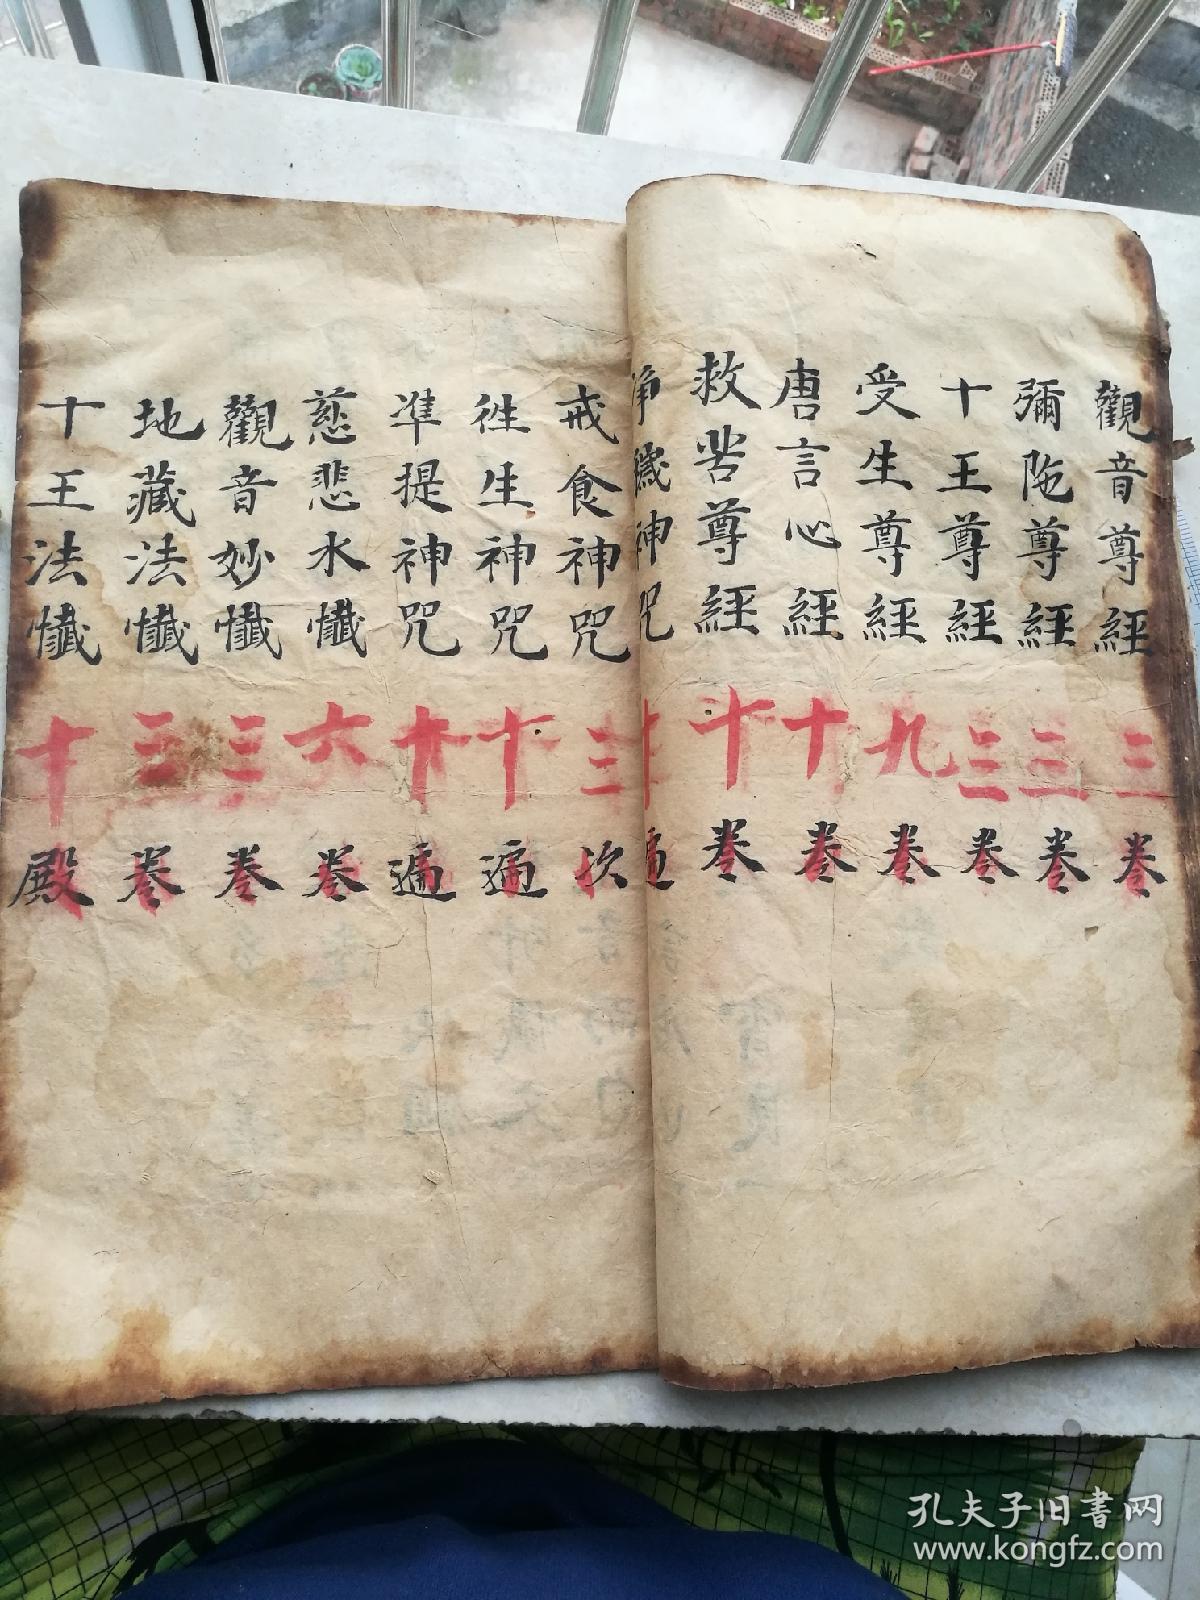 觀音尊經三卷
彌陁尊經三卷
十王尊經三卷
受生尊經九卷
唐言心經十卷
救苦尊經十卷
淨穢神咒十遍
戒食神咒三次
徃生神咒十遍
准提神咒十遍
慈悲水懺六卷
觀音妙懺三卷
地藏法懺三卷
十王法懺十殿
孔夫子旧书网
www.kongfz.com